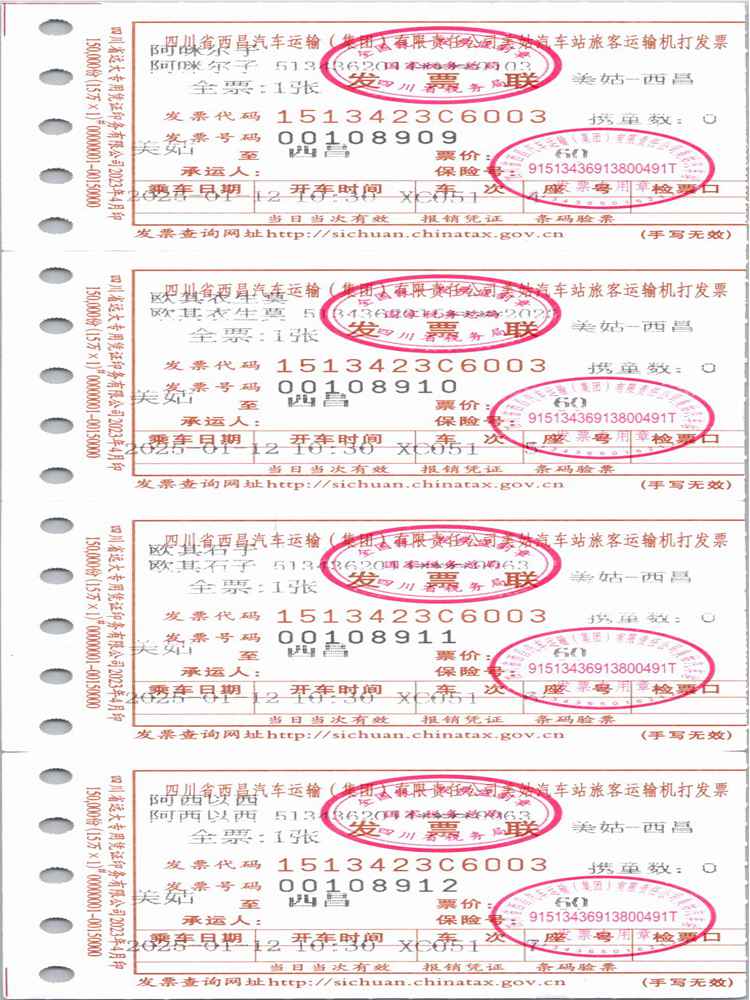 四川省西昌汽车运输（集团）有限责任公司美姑汽车站旅客运输机打发票
阿咪尔子
阿咪尔子
全票:1张
发票联
美姑-西昌
国家税务总局
四川省税务局
发票代码 1513423C6003
携童数: 0
发票号码 00108909
美姑 至 西昌 票价: 60
承运人: 保险号:
91513436913800491T
发票专用章
乘车日期 开车时间 车次 座号 检票口
2025-01-12 10:30 XC051 4
当日当次有效 报销凭证 条码验票
发票查询网址http://sichuan.chinatax.gov.cn (手写无效)
四川省远大专用凭证印务有限公司2023年4月印
150,000份(15万×1)#00000001-00150000
四川省西昌汽车运输（集团）有限责任公司美姑汽车站旅客运输机打发票
欧其衣生莫
欧其衣生莫
全票:1张
发票联
美姑-西昌
国家税务总局
四川省税务局
发票代码 1513423C6003
携童数: 0
发票号码 00108910
美姑 至 西昌 票价: 60
承运人: 保险号:
91513436913800491T
发票专用章
乘车日期 开车时间 车次 座号 检票口
2025-01-12 10:30 XC051 5
当日当次有效 报销凭证 条码验票
发票查询网址http://sichuan.chinatax.gov.cn (手写无效)
四川省远大专用凭证印务有限公司2023年4月印
150,000份(15万×1)#00000001-00150000
四川省西昌汽车运输（集团）有限责任公司美姑汽车站旅客运输机打发票
欧其石子
欧其石子
全票:1张
发票联
美姑-西昌
国家税务总局
四川省税务局
发票代码 1513423C6003
携童数: 0
发票号码 00108911
美姑 至 西昌 票价: 60
承运人: 保险号:
91513436913800491T
发票专用章
乘车日期 开车时间 车次 座号 检票口
2025-01-12 10:30 XC051 6
当日当次有效 报销凭证 条码验票
发票查询网址http://sichuan.chinatax.gov.cn (手写无效)
四川省远大专用凭证印务有限公司2023年4月印
150,000份(15万×1)#00000001-00150000
四川省西昌汽车运输（集团）有限责任公司美姑汽车站旅客运输机打发票
阿西以西
阿西以西
全票:1张
发票联
美姑-西昌
国家税务总局
四川省税务局
发票代码 1513423C6003
携童数: 0
发票号码 00108912
美姑 至 西昌 票价: 60
承运人: 保险号:
91513436913800491T
发票专用章
乘车日期 开车时间 车次 座号 检票口
2025-01-12 10:30 XC051 7
当日当次有效 报销凭证 条码验票
发票查询网址http://sichuan.chinatax.gov.cn (手写无效)
四川省远大专用凭证印务有限公司2023年4月印
150,000份(15万×1)#00000001-00150000